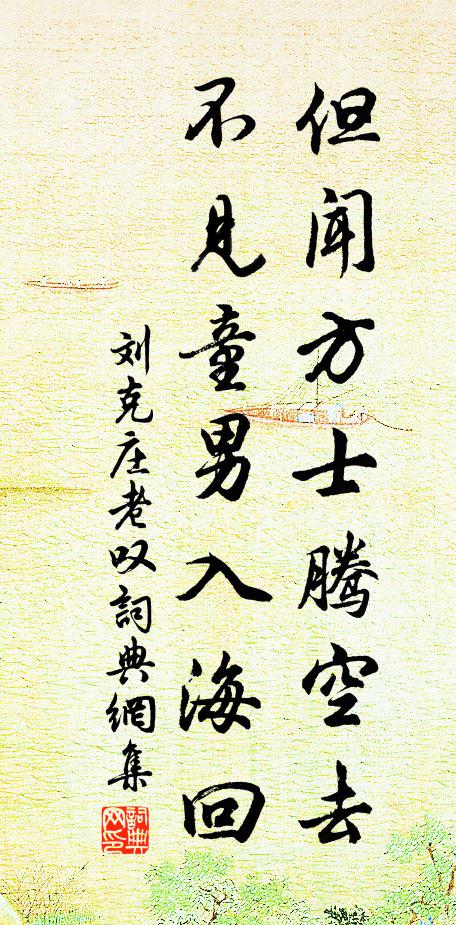 但闻方士腾空去
不见童男入海回
刘克庄老叹词典網集
詞典网印